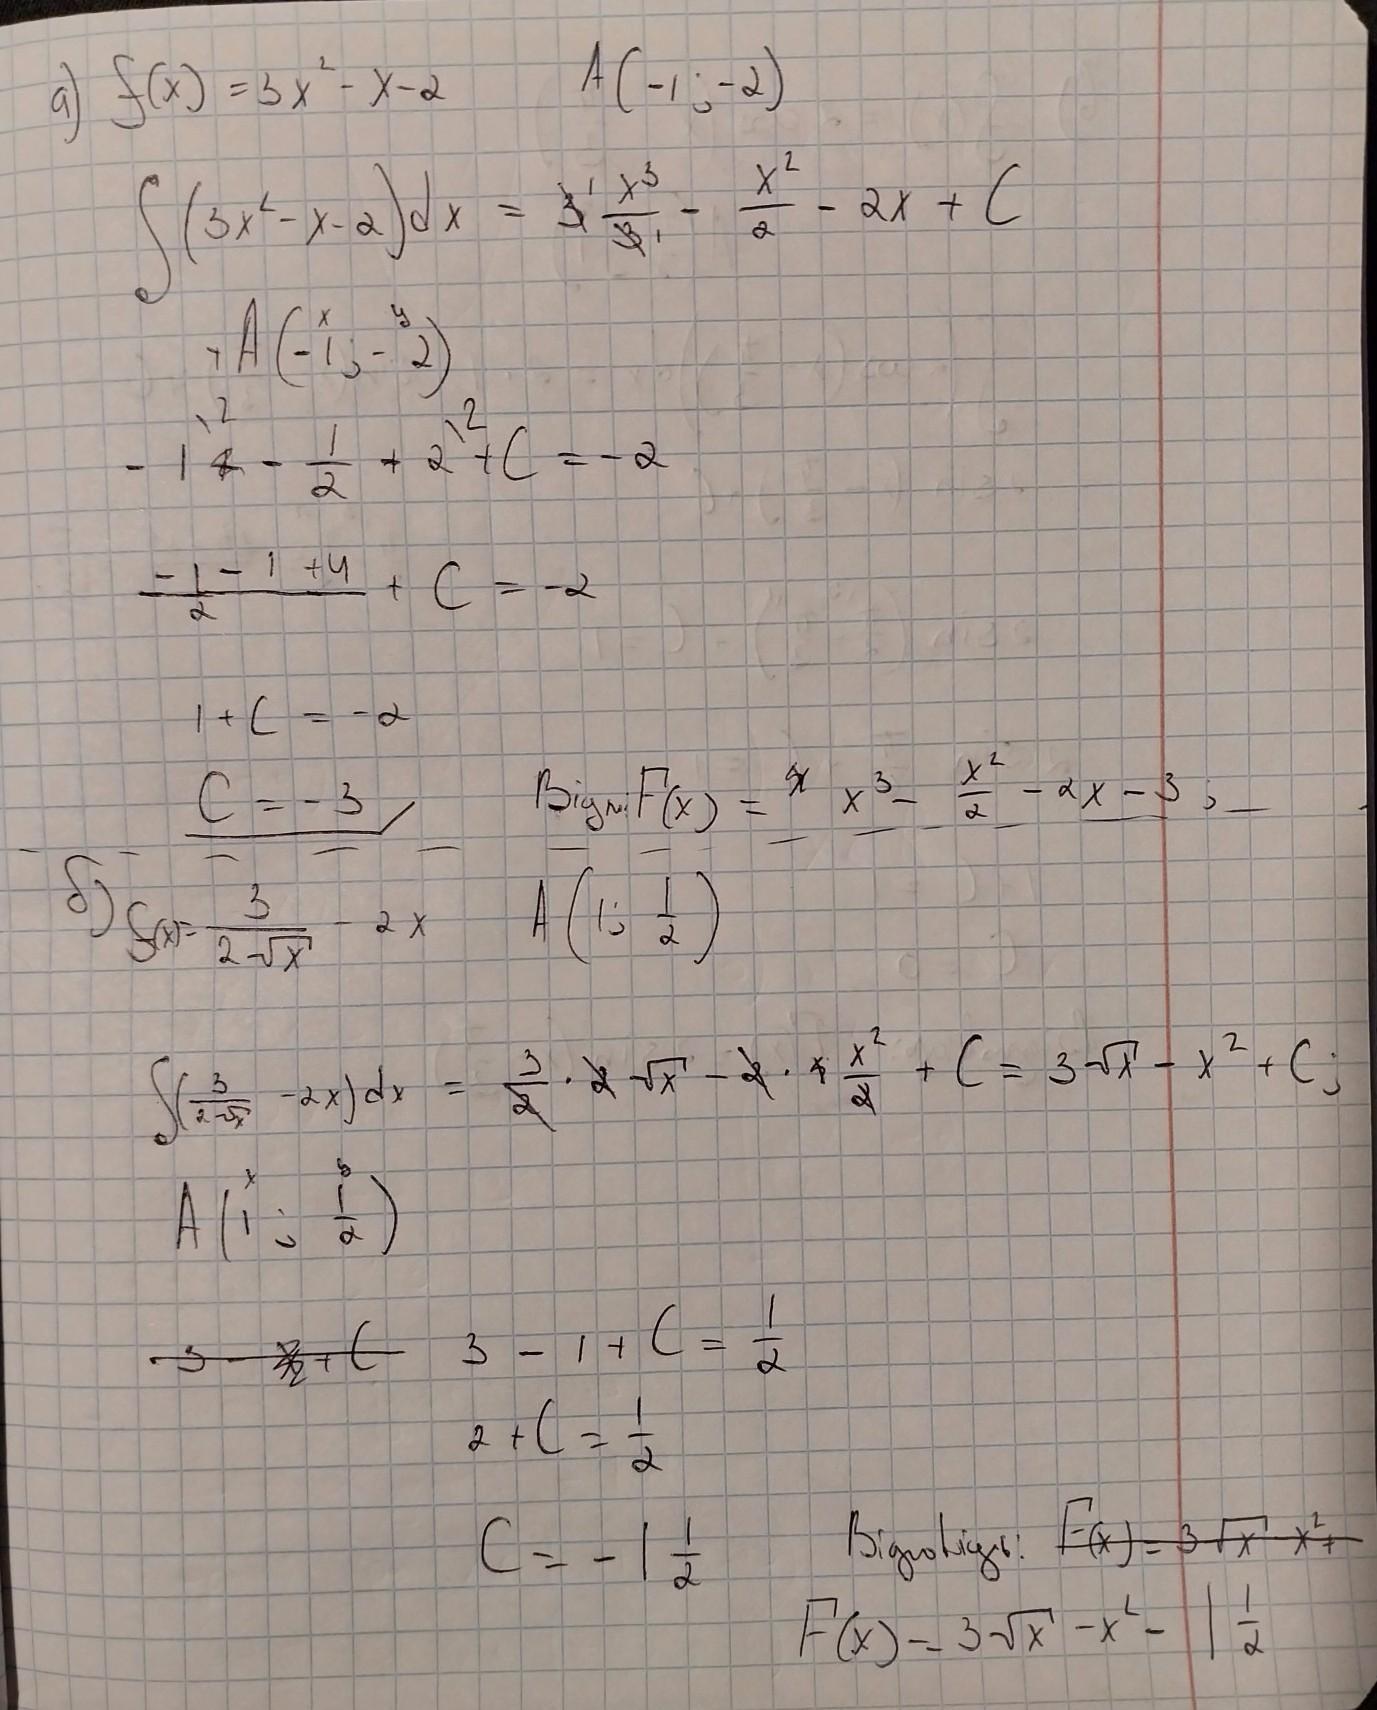 а) f(x) = 3x² - x - 2 A(-1; -2)
∫(3x² - x - 2)dx = 3 x³/3 - x²/2 - 2x + C
A(-1; -2)
x y
-1 \2 - 1/2 + 2 \2 + C = -2
(-1 - 1 + 4)/2 + C = -2
1 + C = -2
C = -3 Відп: F(x) = x³ - x²/2 - 2x - 3;
б) f(x) = 3/(2√x) - 2x A(1; 1/2)
∫(3/(2√x) - 2x)dx = 3/2 · 2√x - 2 · x²/2 + C = 3√x - x² + C;
x y
A(1; 1/2)
3 - 1 + C = 1/2
2 + C = 1/2
C = -1 1/2 Відповідь: F(x) = 3√x x² +
F(x) = 3√x - x² - 1 1/2